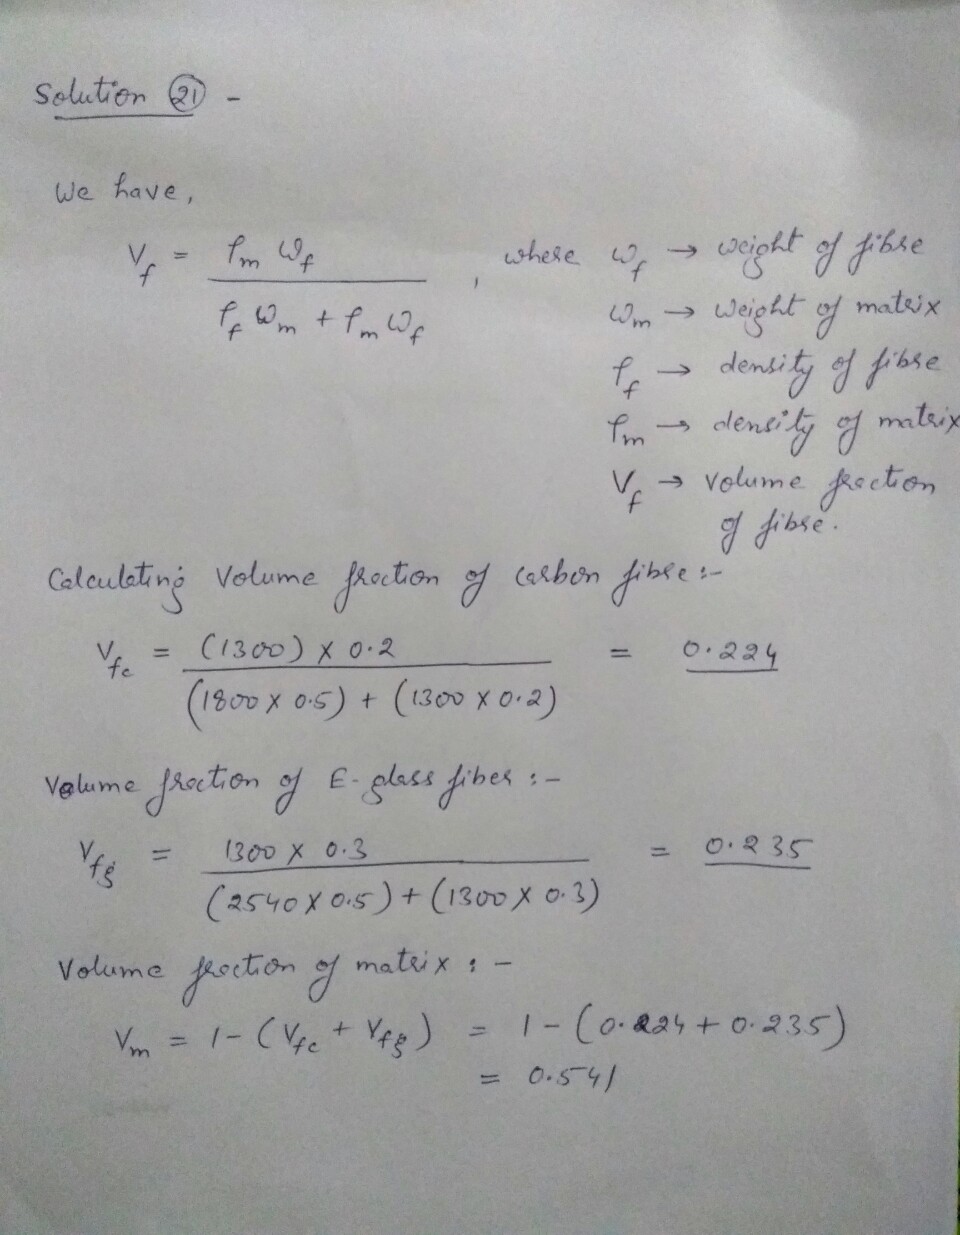 Solution 21 -
We have,
V_f = ρ_m ω_f / (ρ_f ω_m + ρ_m ω_f) , where ω_f → weight of fibre
ω_m → weight of matrix
ρ_f → density of fibre
ρ_m → density of matrix
V_f → volume fraction
of fibre.
Calculating volume fraction of carbon fibre :-
V_fc = (1300) X 0.2 / (1800 X 0.5) + (1300 X 0.2) = 0.224
Volume fraction of E-glass fiber :-
V_fg = 1300 X 0.3 / (2540 X 0.5) + (1300 X 0.3) = 0.235
Volume fraction of matrix : -
V_m = 1 - (V_fc + V_fg) = 1 - (0.224 + 0.235)
= 0.541